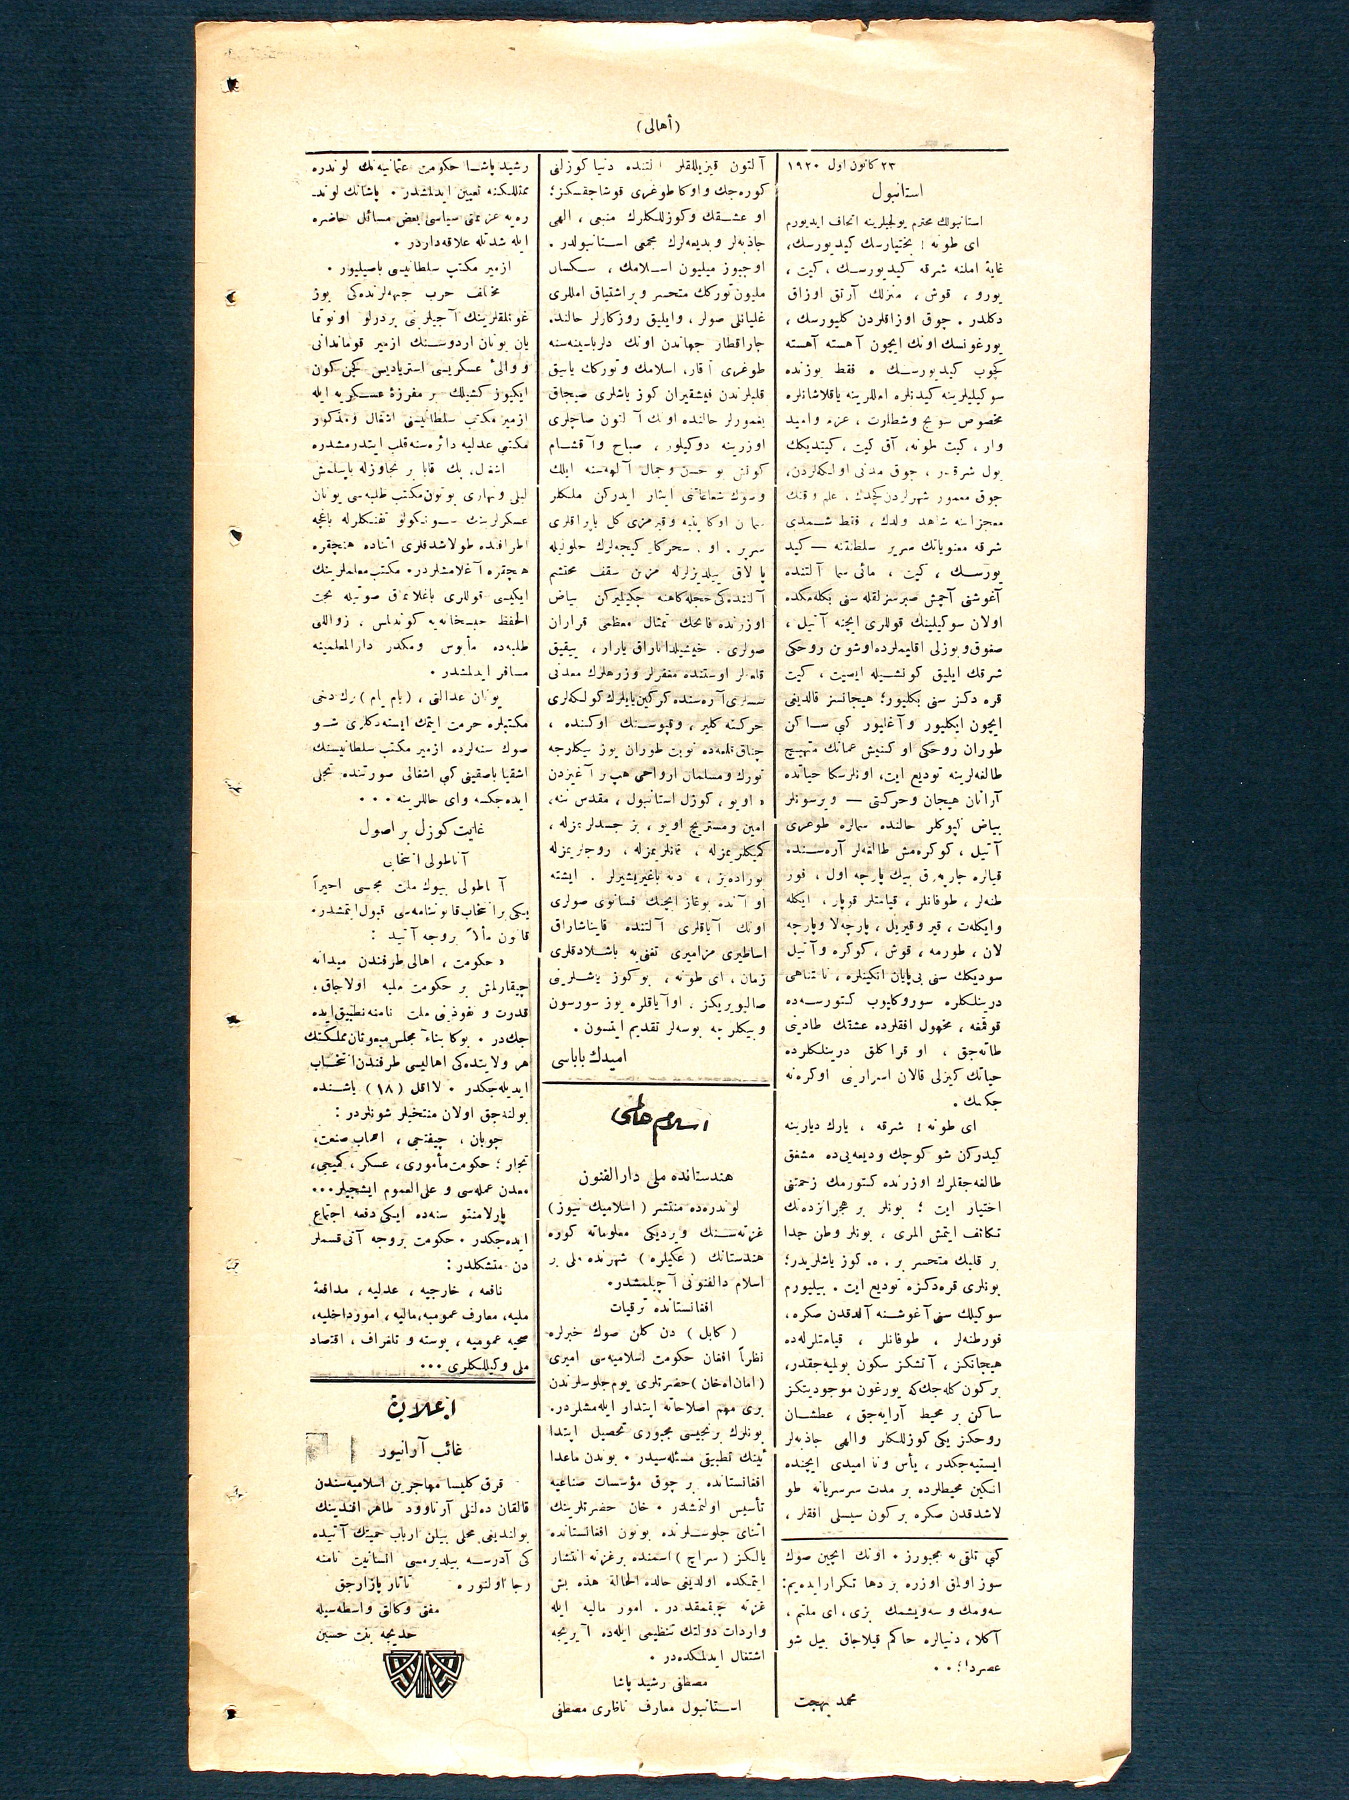 (أهالی)
٢٣ كانون اول ١٩٢٠
استانبول
استانبولك محترم يولجيلرينه اتحاف ايديورم
ای طونه ! بختيارسك كيديورسك،
غاية املنه شرقه كيديورسك ، كيت ،
يورو ، قوش ، منزلك آرتق اوزاق
دكلدر . چوق اوزاقلردن كليورسك ،
يورغونسك اونك ايچون آهسته آهسته
كچوب كيديورسك . فقط يوزنده
سوكيليلرينه كيدنلره امللرينه ياقلاشانلره
مخصوص سوينج وشطارت ، عزم واميد
وار ، كيت طونه، آق كيت ، كيتديكك
يول شرقدر ، چوق مدنی اولكه‌لردن،
چوق معمور شهرلردن كچدك ، علم وفنك
معجزاتنه شاهد اولدك ، فقط شمدی
شرقه معنوياتك سرير سلطنتنه — كيد
يورسك ، كيت ، مائی سما آلتنده
آغوشنی آچمش صبرسزلقله سنی بكله‌مكده
اولان سوكيلينك قوللری ايچنه آتيل ،
صغوق وبوزلی اقليملرده اوشوين روحكی
شرقك ايليق كونشيله ايسيت ، كيت
قره دكز سنی بكليور؛ هيجانسز قالديغی
ايچون ايكليور وآغليور كبی ساكن
طوران روحكی او كنيش عمانك متهيج
طالغه‌لرينه توديع ايت، اونلرسكا حياتده
آرانان هيجان وحركتی — ويرسونلر
بياض كوپوكلر حالنده سمالره طوغری
آتيل ، كوكره‌مش طالغه‌لر آره‌سنده
قيالره چارپه‌رق بيك پارچه اول ، فور
طنه‌لر ، طوفانلر ، قيامتلر قوپار ، ايكله
وايكلەت ، قير وقيريل ، پارچه‌لا وپارچه
لان ، طورمه ، قوش ، كوكره وآتيل
سوديكك سنی بی‌پايان انكينلره ، نامتناهی
درينلكلره سوروكليوب كتورسه‌ده
قورقمه ، مجهول افقلرده عشقك طادينی
طاته‌جق ، او قراكلق درينلكلرده
حياتك كيزلی قالان اسرارينی اوكره‌نه
جكسك .
ای طونه ! شرقه ، يارك ديارينه
كيدركن شو كوچك وديعه‌يی‌ده مشفق
طالغه‌جقلرك اوزرنده كتورمك زحمتنی
اختيار ايت ؛ بونلر بر هجرانزده‌نك
تكاثف ايتمش الملری ، بونلر وطن جدا
بر قلبك متحسر بر . ه. كوز ياشلريدر؛
بونلری قره‌دكزه توديع ايت . بيليورم
سوكيلك سنی آغوشنه آلدقدن صكره ،
فورطنه‌لر ، طوفانلر ، قيامتلرله‌ده
هيجانكز ، آتشكز سكون بولميه‌جقدر،
بركون كله‌جك كه يورغون موجوديتكز
ساكن بر محيط آرايه‌جق ، عطشان
روحكز يكی كوزللكلر والهی جاذبه‌لر
ايستيه‌جكدر ، يأس ونا اميدی ايچنده
انكين محيطلرده بر مدت سرسريانه طو
لاشدقدن صكره بر كون سيسلی افقلر ،
كبی تلقی‌يه مجبورز . اونك ايچين صوك
سوز اولمق اوزره بر دها تكرار ايده‌يم:
سه‌ومك و سه‌ويشمك بزی، ای ملتم ،
آكلا ، دنيالره حاكم قيلاجاق بيل شو
عصردا !؛ . .
محمد بهجت
آلتون قيزيللقلر آلتنده دنيا كوزلنی
كوره‌جك و اوكا طوغری قوشاجقسكز؛
او عشقك وكوزللكلرك منبعی ، الهی
جاذبه‌لر وبديعه‌لرك مجمعی استانبولدر .
اوچيوز ميليون اسلامك ، سكسان
مليون توركك متحسر وپراشتياق امللری
غليانلی صولر ، وايليق روزكارلر حالنده
چاراقطار جهاندن اونك درياسينه‌سنه
طوغری آقار، اسلامك وتوركك ياسق
قلبلرندن فيشقيران كوز ياشلری صيجاق
يغمورلر حالنده اونك آلتون صاچلری
اوزرينه دوكيلور ، صباح وآقشام
كونش بو حسن وجمال آلهه‌سنه ايلك
وصوك شعاعاتنی ايثار ايدركن ملكلر
سمادن اوكا پنبه وقيرمزی كل ياپراقلری
سرپر . او ، سحركار كيجه‌لرك حلوليله
پارلاق ييلديزلرله مزين سقف محتشم
آلتنده‌كی حجله‌كاهنه چكيليركن بياض
اوزرنده فاتحك تمثال معظمی قراران
صولری . خيشيلداتاراق يارار ، ييقيق
قلعه‌لر اوستنده مغفرلر وزرهلرك معدنی
سسلری آره‌سنده كركين يايلرك كولكه‌لری
حركته كلير ، وقپوسنك اوكنده ،
چناق قلعه‌ده نوبت طوران يوز بيكلرجه
تورك ومسلمان ارواحی هپ بر آغيزدن
« اويو ، كوزل استانبول ، مقدس ننه،
امين ومستريح اويو ، بز جسدلريمزله ،
كميكلريمزله ، قانلريمزله ، روحلريمزله
بوراده‌يز ، » ديه باغيريشيرلر . ايشته
او آنده بوغاز ايچنك فسانوی صولری
اونك آياقلری آلتنده قايناشاراق
اساطيری مزاميری تغنی‌يه باشلادقلری
زمان ، ای طونه ، بو كوز ياشلرينی
صاليويريكز . اوآياقلره يوز سورسون
وبيكلرجه بوسه‌لر تقديم ايتسون .
اميدك باباسی
اسلام عالمی
هندستانده ملی دارالفنون
لوندره‌ده منتشر (اسلاميك نيوز)
غزته‌سنك ويرديكی معلوماته كوره
هندستانك (عكيلره) شهرنده ملی بر
اسلام دالفنونی آچيلمشدر.
افغانستانده ترقيات
(كابل) دن كلن صوك خبرلره
نظراً افغان حكومت اسلاميه‌سی اميری
(امان‌اه‌خان) حضرتلری يوم جلوسلرندن
بری مهم اصلاحاته ابتدار ايله‌مشلردر.
بونلرك برنجيسی مجبوری تحصيل ابتدا
ئينك تطبيقی مسئله‌سيدر . بوندن ماعدا
افغانستانده بر چوق مؤسسات صناعيه
تأسيس اولنمشدر . خان حضرتلرينك
اثنای جلوسلرنده بوتون افغانستانده
يالكز (سراج) اسمنده بر غزته انتشار
ايتمكده اولديغی حالده الحالة هذه بش
غزته چيقمقده در . امور ماليه ايله
واردات دولتك تنظيمی ايله‌ده آيريجه
اشتغال ايدلمكده‌در .
مصطفی رشيد پاشا
استانبول معارف ناظری مصطفی
رشيد پاشا حكومت عثمانيه‌نك لوندره
ممثللكنه تعيين ايدلمشدر . پاشانك لوند
ره‌يه عزيمتی سياسی بعض مسائل حاضره
ايله شدتله علاقه‌داردر .
ازمير مكتب سلطانيسی باصيليور .
مختلف حرب جبهه‌لرنده‌كی بوز
غونلقلرينك آجيلرينی بردرلو اونوتما
يان يونان اردوسنك ازمير قوماندانی
و والیء عسكريسی استرياديس كچن كون
ايكيوز كشيلك بر مفرزۀ عسكريه ايله
ازمير مكتب سلطانيسنی اشغال ومذكور
مكتبی عدليه دائره‌سنه قلب ايتدرمشدر
اشغال، پك قابا بر تجاوزله ياپيلمش
ليلی ونهاری بوتون مكتب طلبه‌سی يونان
عسكرلرينك سونكولو تفنكلرله باغچه
اطرافنده طولاشدقلری اثناده هنچقره
هنچقره آغلامشلردر. مكتب معلملرينك
ايكيسی قوللری باغلانمق صورتيله تحت
الحفظ حبسخانه‌يه كوندرلمش . زواللی
طلبه‌ده مأيوس ومكدر دارالمعلمينه
مسافر ايدلمشدر .
يونان عدالتی ، (يام يام) لرك دخی
مكتبلره حرمت ايتمك ايسته‌دكلری شو
صوك سنه‌لرده ازمير مكتب سلطانيسنك
اشقيا باصقينی كبی اشغالی صورتنده تجلی
ايده‌جكسه وای حاللرينه . . .
غايت كوزل بر اصول
آناطولی انتخابی
آناطولی بيوك ملت مجلسی اخيراً
يكی بر انتخاب قانوننامه‌سی قبول ايتمشدر.
قانون مألاً بروجه آتيدر :
« حكومت ، اهالی طرفندن ميدانه
چيقارلمش بر حكومت مليه اولاجاق،
قدرت و نفوذينی ملت نامنه تطبيق ايده
جكدر . بوكا بناءً مجلس مبعوثان مملكتك
هر ولايتده‌كی اهاليسی طرفندن انتخاب
ايديله‌جكدر . لااقل (١٨) ياشنده
بولنه‌جق اولان منتخبلر شونلردر :
چوبان ، چيفتجی ، اصحاب صنعت،
تجار ؛ حكومت مأموری ، عسكر ، كميجی،
معدن عمله‌سی و علی‌العموم ايشجيلر...
پارلامنتو سنه‌ده ايكی دفعه اجتماع
ايده‌جكدر . حكومت بروجه آتی قسملر
دن متشكلدر :
نافعه ، خارجيه ، عدليه ، مدافعۀ
مليه، معارف عموميه، ماليه ، امورداخليه،
صحيۀ عموميه ، پوسته و تلغراف ، اقتصاد
ملی وكيللكلری ...
اعلان
غائب آرانيور
قرق كليسا مهاجرين اسلاميه‌سندن
قالقان ده‌لنلی آرناوود طاهر افندينك
بولنديغی محلی بيلن ارباب حميتك آتيده
كی آدرسه بيلديرمسی انسانيت نامنه
رجا اولنور . تاتار پازارجق
مفتی وكالتی واسطه‌سيله
خديجه بنت حسين